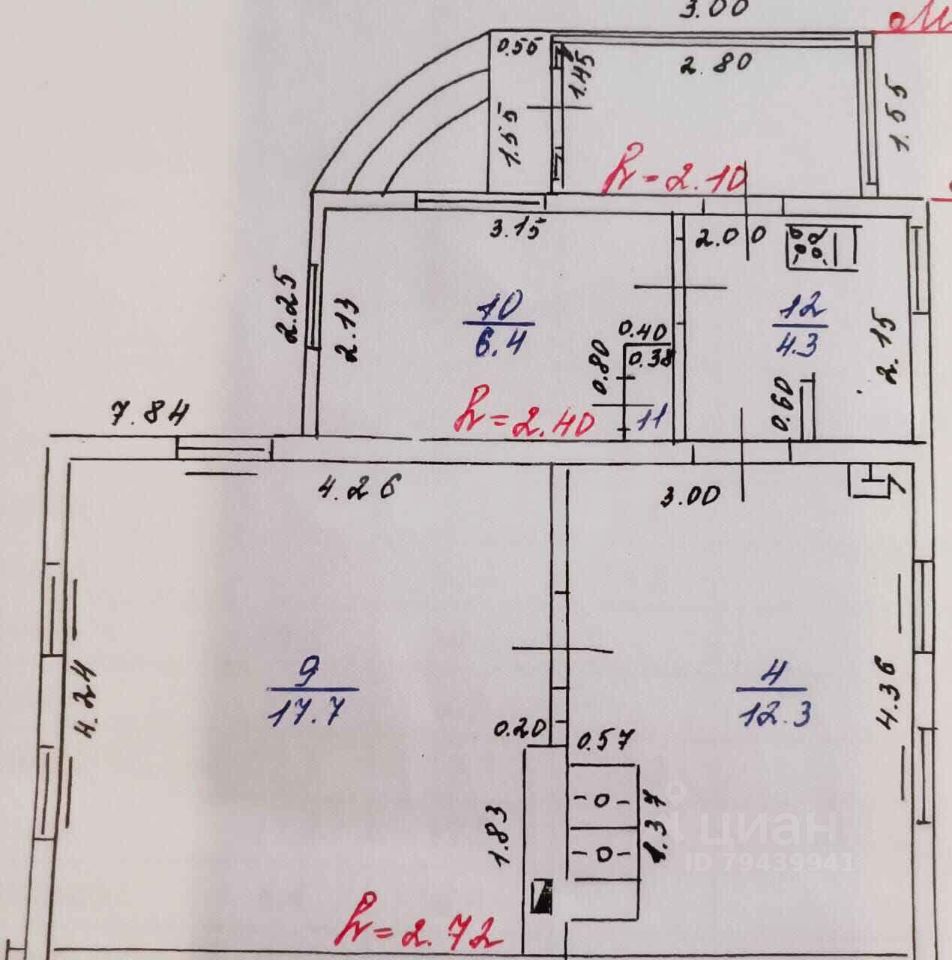 3.00
0.55
2.80
1.45
1.55
1.55
h=2.10
3.15
2.00
2.25
2.13
10
6.4
12
4.3
2.15
0.40
0.38
0.80
0.60
h=2.40
11
7.84
4.26
3.00
9
17.7
4
12.3
4.24
4.36
0.20
0.57
1.83
1.37
циан
ID 79439941
h=2.72